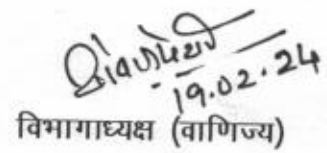 19.02.24
विभागाध्यक्ष (वाणिज्य)